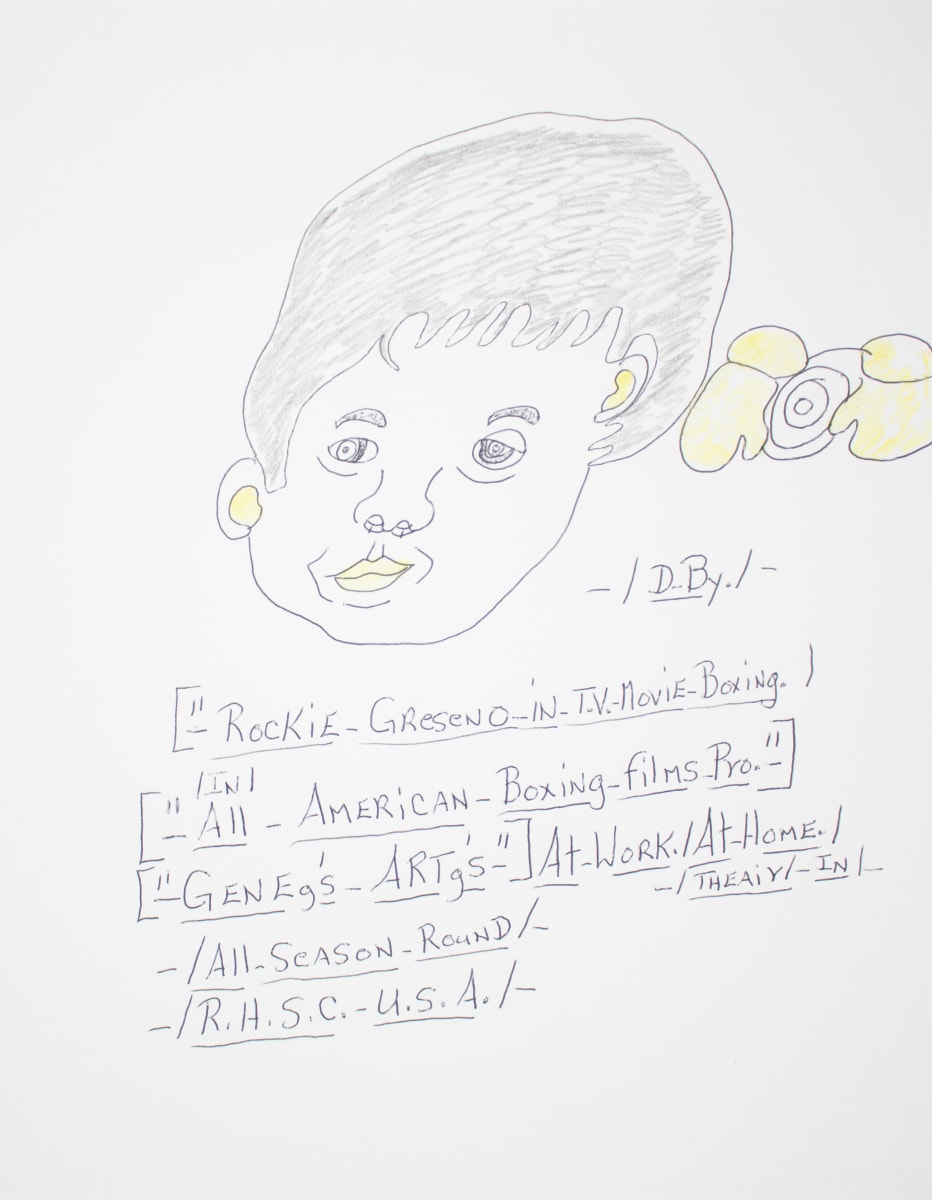 -/D-By./-
["-RocKiE-GReseNO-iN-T.V.-MoviE-Boxing.)
/IN/
["-All-AMERiCAN-Boxing-films-Pro.-"]
["-GENEg's-ARTg's-"] At-WoRK./At-HoME./
-/THEAiY/-IN/-
-/All-SeASON-RouND/-
-/R.H.S.C.-U.S.A./-